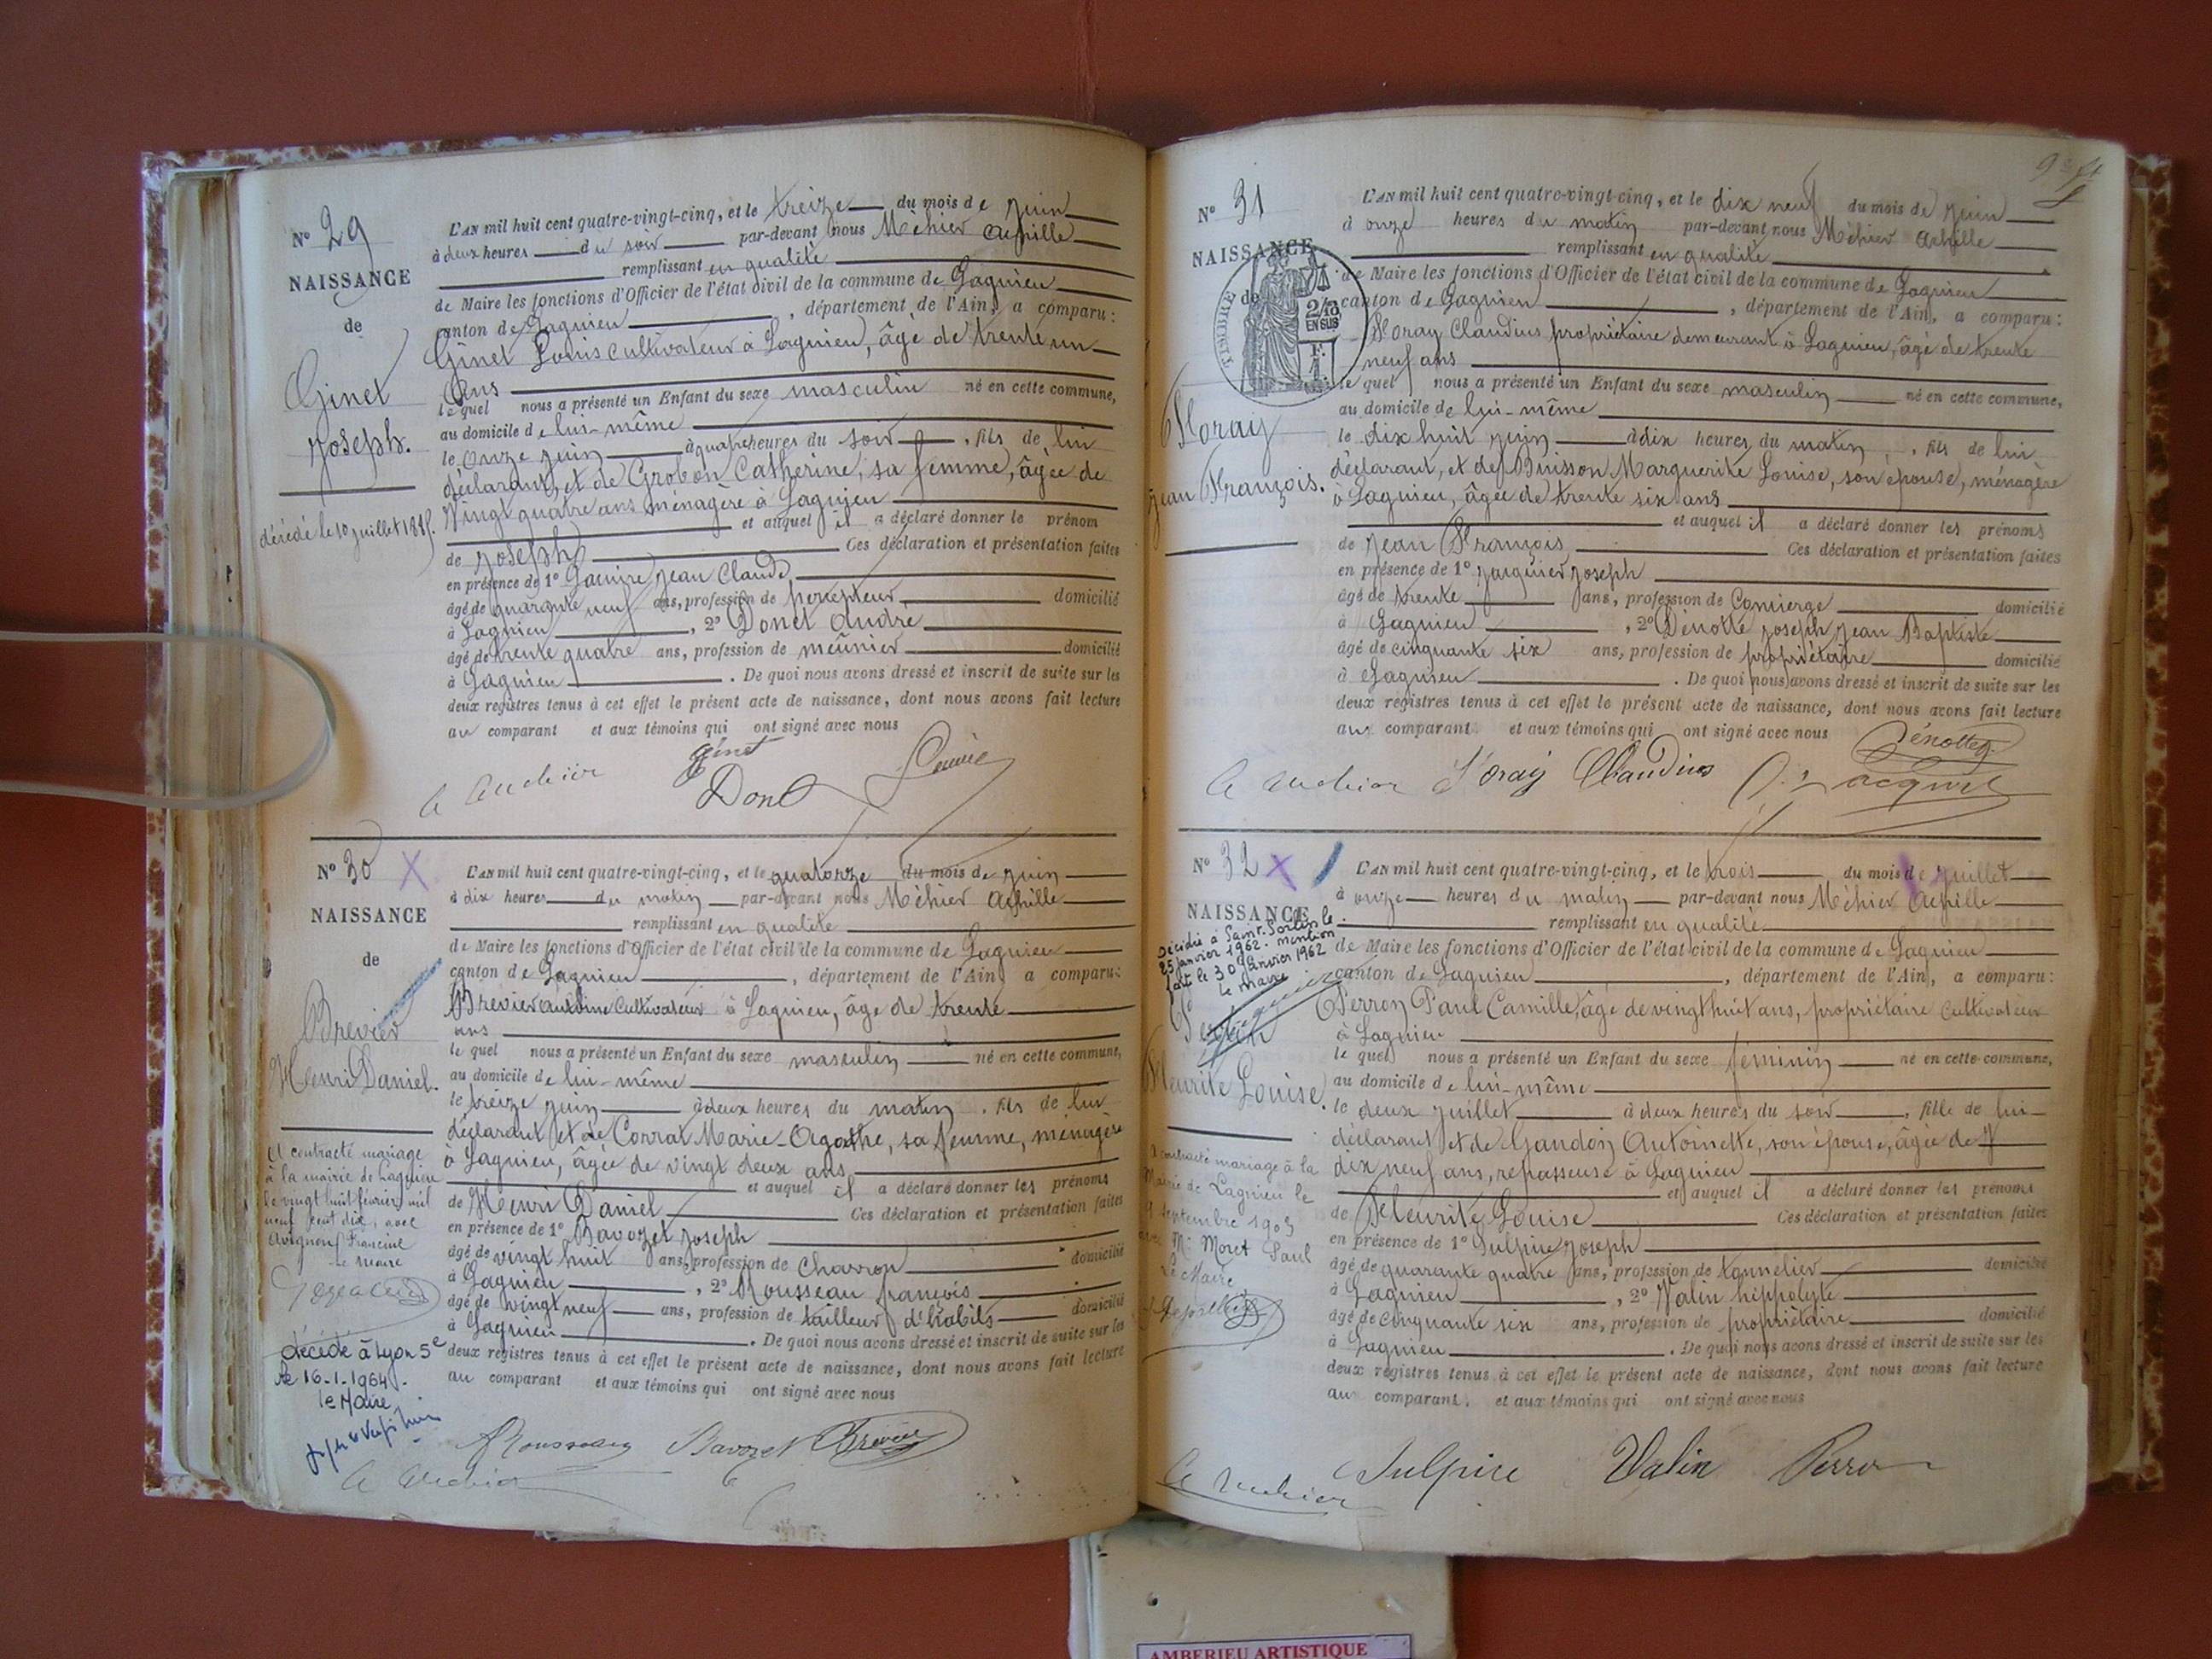 N° 29
NAISSANCE
de
Ginet
Joseph.
décédé le 10 juillet 1885.
L'AN mil huit cent quatre-vingt-cinq, et le treize du mois de juin
à deux heures du soir par-devant nous Méhier Achille
remplissant en qualité
de Maire les fonctions d'Officier de l'état civil de la commune de Lagnieu
canton de Lagnieu, département de l'Ain, a comparu:
Ginet Louis cultivateur à Lagnieu, âgé de trente un
ans
le quel nous a présenté un Enfant du sexe masculin né en cette commune,
au domicile de lui-même
le onze juin à quatre heures du soir, fils de lui
déclarant, et de Grobon Catherine, sa femme, âgée de
vingt quatre ans ménagère à Lagnieu
et auquel il a déclaré donner le prénom
de Joseph Ces déclaration et présentation faites
en présence de 1° Jean Claude
âgé de quarante neuf ans, profession de percepteur domicilié
à Lagnieu, 2° Donet André
âgé de trente quatre ans, profession de meûnier domicilié
à Lagnieu. De quoi nous avons dressé et inscrit de suite sur les
deux registres tenus à cet effet le présent acte de naissance, dont nous avons fait lecture
au comparant et aux témoins qui ont signé avec nous
Ginet
A Méhier Donet
N° 30 X
NAISSANCE
de
Brevier
Henri Daniel.
A contracté mariage
à la mairie de Lagnieu
le vingt huit février mil
neuf cent dix, avec
Francine
Le Maire
décédé à Lyon 5e
le 16-1-1964.
le Maire
L'AN mil huit cent quatre-vingt-cinq, et le quatorze du mois de juin
à dix heures du matin par-devant nous Méhier Achille
remplissant en qualité
de Maire les fonctions d'Officier de l'état civil de la commune de Lagnieu
canton de Lagnieu, département de l'Ain, a comparu:
Brevier Antoine Cultivateur à Lagnieu, âgé de trente
ans
le quel nous a présenté un Enfant du sexe masculin né en cette commune,
au domicile de lui-même
le treize juin à deux heures du matin, fils de lui
déclarant et de Corrat Marie-Agathe, sa femme, ménagère
à Lagnieu, âgée de vingt deux ans
et auquel il a déclaré donner les prénoms
de Henri Daniel Ces déclaration et présentation faites
en présence de 1° Bavozet Joseph
âgé de vingt huit ans, profession de Charron domicilié
à Lagnieu, 2° Rousseau françois
âgé de vingt neuf ans, profession de tailleur d'habits domicilié
à Lagnieu. De quoi nous avons dressé et inscrit de suite sur les
deux registres tenus à cet effet le présent acte de naissance, dont nous avons fait lecture
au comparant et aux témoins qui ont signé avec nous
Rousseau Bavozet Brevier
A Méhier
N° 31
NAISSANCE
de
TIMBRE
2/10
EN SUS
1 F.
Floray
Jean François.
L'AN mil huit cent quatre-vingt-cinq, et le dix neuf du mois de juin
à onze heures du matin par-devant nous Méhier Achille
remplissant en qualité
de Maire les fonctions d'Officier de l'état civil de la commune de Lagnieu
canton de Lagnieu, département de l'Ain, a comparu:
Floray Claudius propriétaire demeurant à Lagnieu, âgé de trente
neuf ans
le quel nous a présenté un Enfant du sexe masculin né en cette commune,
au domicile de lui-même
le dix huit juin à dix heures du matin, fils de lui
déclarant, et de Buisson Marguerite Louise, son épouse, ménagère
à Lagnieu, âgée de trente six ans
et auquel il a déclaré donner les prénoms
de Jean François Ces déclaration et présentation faites
en présence de 1° Joseph
âgé de trente ans, profession de Concierge domicilié
à Lagnieu, 2° Dénotte Joseph Jean Baptiste
âgé de cinquante six ans, profession de propriétaire domicilié
à Lagnieu. De quoi nous avons dressé et inscrit de suite sur les
deux registres tenus à cet effet le présent acte de naissance, dont nous avons fait lecture
au comparant et aux témoins qui ont signé avec nous
A Méhier Floray Claudius
N° 32 X
NAISSANCE
Décédée à Saint-Sorlin le
25 janvier 1962. mention
fait le 30 janvier 1962
le maire
Perron
Fleurite Louise.
A contracté mariage à la
Mairie de Lagnieu le
septembre 1905
Mr Moret Paul
Le Maire
L'AN mil huit cent quatre-vingt-cinq, et le trois du mois de juillet
à onze heures du matin par-devant nous Méhier Achille
remplissant en qualité
de Maire les fonctions d'Officier de l'état civil de la commune de Lagnieu
canton de Lagnieu, département de l'Ain, a comparu:
Perron Paul Camille, âgé de vingt huit ans, propriétaire cultivateur
à Lagnieu
le quel nous a présenté un Enfant du sexe féminin né en cette commune,
au domicile de lui-même
le deux juillet à deux heures du soir, fille de lui
déclarant et de Gandon Antoinette, son épouse, âgée de
dix neuf ans, repasseuse à Lagnieu
et auquel il a déclaré donner les prénoms
de Fleurite Louise Ces déclaration et présentation faites
en présence de 1° Sulpice Joseph
âgé de quarante quatre ans, profession de tonnelier domicilié
à Lagnieu, 2° Valin hippolyte
âgé de cinquante six ans, profession de propriétaire domicilié
à Lagnieu. De quoi nous avons dressé et inscrit de suite sur les
deux registres tenus à cet effet le présent acte de naissance, dont nous avons fait lecture
au comparant, et aux témoins qui ont signé avec nous
A Méhier Sulpice Valin Perron
AMBERIEU ARTISTIQUE